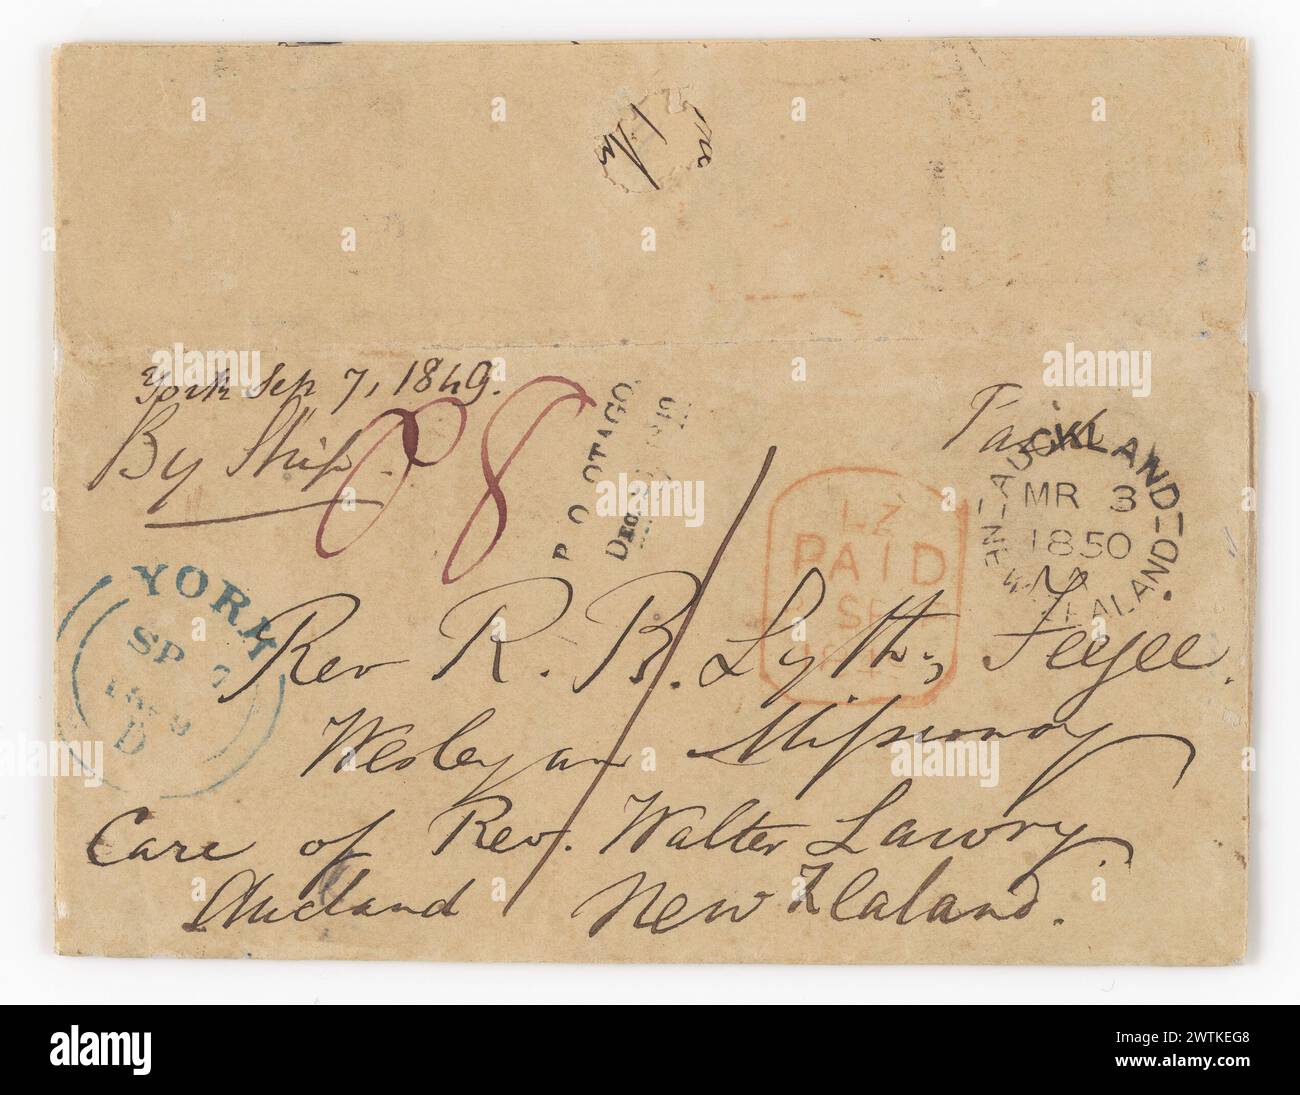 York Sep 7, 1849.
By Ship
8
P.O. OTAGO.
Dec.
Paid
AUCKLAND
MR 3
1850
NEW-ZEALAND
LZ
PAID
SP
YORK
SP 7
1849
D
Rev R. B. Lyth, Feejee.
Wesleyan Missionary
Care of Rev. Walter Lawry.
Auckland New Zealand.
alamy
Image ID: 2WTKEG8
www.alamy.com